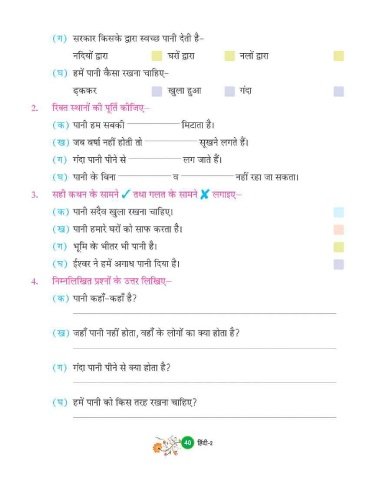 (ग) सरकार किसके द्वारा स्वच्छ पानी देती है–
नदियों द्वारा घरों द्वारा नलों द्वारा
(घ) हमें पानी कैसा रखना चाहिए–
ढ्ककर खुला हुआ गंदा
2. रिक्त स्थानों की पूर्ति कीजिए–
(क) पानी हम सबकी ________ मिटाता है।
(ख) जब वर्षा नहीं होती तो ________ सूखने लगते हैं।
(ग) गंदा पानी पीने से ________ लग जाते हैं।
(घ) पानी के बिना ________ व ________ नहीं रहा जा सकता।
3. सही कथन के सामने ✓ तथा गलत के सामने ✗ लगाइए–
(क) पानी सदैव खुला रखना चाहिए।
(ख) पानी हमारे घरों को साफ करता है।
(ग) भूमि के भीतर भी पानी है।
(घ) ईश्वर ने हमें अगाध पानी दिया है।
4. निम्नलिखित प्रश्नों के उत्तर लिखिए–
(क) पानी कहाँ-कहाँ है?
(ख) जहाँ पानी नहीं होता, वहाँ के लोगों का क्या होता है?
(ग) गंदा पानी पीने से क्या होता है?
(घ) हमें पानी को किस तरह रखना चाहिए?
40 हिंदी-2